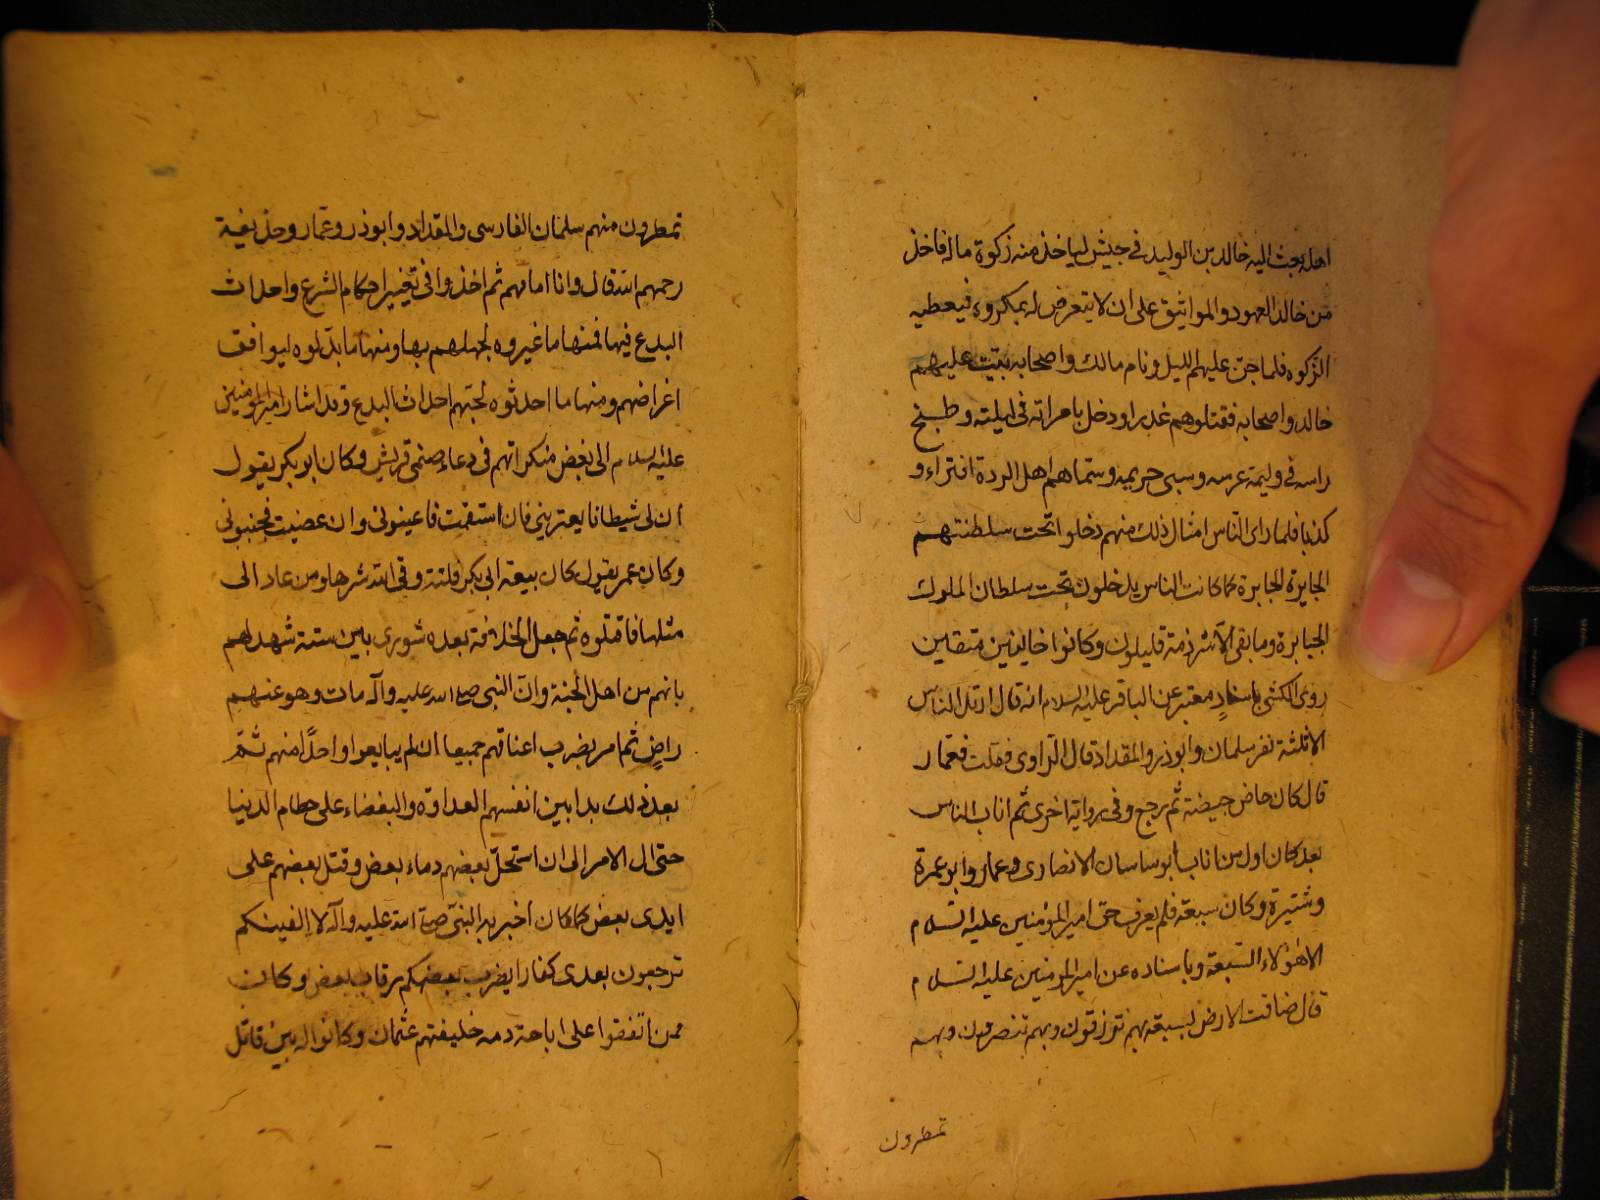 اهله بعث اليه خالد بن الوليد في جيش لياخذ منه زكوة ماله فاخذ
من خالد العهود والمواثيق على ان لا يتعرض له بمكروه فيعطيه
الزكوه فلما جن عليهم الليل ونام مالك واصحابه بيّت عليهم
خالد واصحابه فقتلوهم غدرا ودخل بامراته في ليلته وطبخ
راسه في وليمة عرسه وسبى حريمه وسماهم اهل الردة افتراء و
كذبا فلما راى الناس امثال ذلك منهم دخلوا تحت سلطنتهم
الجايرة الجابرة كما كانت الناس يدخلون تحت سلطان الملوك
الجبابرة وما بقى الا شرذمة قليلون وكانوا خايفين متقين
روى الكشي باسناد معتبر عن الباقر عليه السلام انه قال ارتد الناس
الا ثلثة نفر سلمان وابوذر والمقداد قال الراوى فقلت فعمار
قال كان حاص حيصة ثم رجع وفي رواية اخرى ثم اناب الناس
بعد كان اول من اناب ابو ساسان الانصارى وعمار وابو عمرة
وشتيرة وكان سبعة فلم يعرف حق امير المؤمنين عليه السلام
الا هؤلاء السبعة وباسناده عن امير المؤمنين عليه السلام
قال ضاقت الارض لسبعة بهم ترزقون وبهم تنصرون وبهم
تمطرون
تمطرون منهم سلمان الفارسى والمقداد وابوذر وعمار وحذيفة
رحمهم الله قال وانا امامهم ثم اخذوا في تغيير احكام الشرع واحداث
البدع فيها فمنها ما غيروه لجهلهم بها ومنها ما بدّلوه ليوافق
اغراضهم ومنها ما احدثوه لحبهم احداث البدع وقد اشار امير المؤمنين
عليه السلام الى بعض منكراتهم في دعاء صنمى قريش وكان ابو بكر يقول
ان لى شيطانا يعتريني فان استقمت فاعينونى وان عصيت فجنبونى
وكان عمر يقول كان بيعة ابى بكر فلتة وقى الله شرها ومن عاد الى
مثلها فاقتلوه ثم جعل الخلافة بعده شورى بين ستة شهد لهم
بانهم من اهل الجنة وان النبى صلى الله عليه وآله مات وهو عنهم
راضٍ ثم امر بضرب اعناقهم جميعا ان لم يبايعوا واحدًا منهم ثمّ
بعد ذلك بدا بين انفسهم العداوة والبغضاء على حطام الدنيا
حتى ال الامر الى ان استحلّ بعضهم دماء بعض وقتل بعضهم على
ايدى بعض كما كان اخبر به النبيّ صلى الله عليه وآله لا الفينكم
ترجعون بعدى كفارا يضرب بعضكم رقاب بعض وكان
ممن اتفقوا على اباحة دمه خليفتهم عثمان وكانوا له بين قاتل